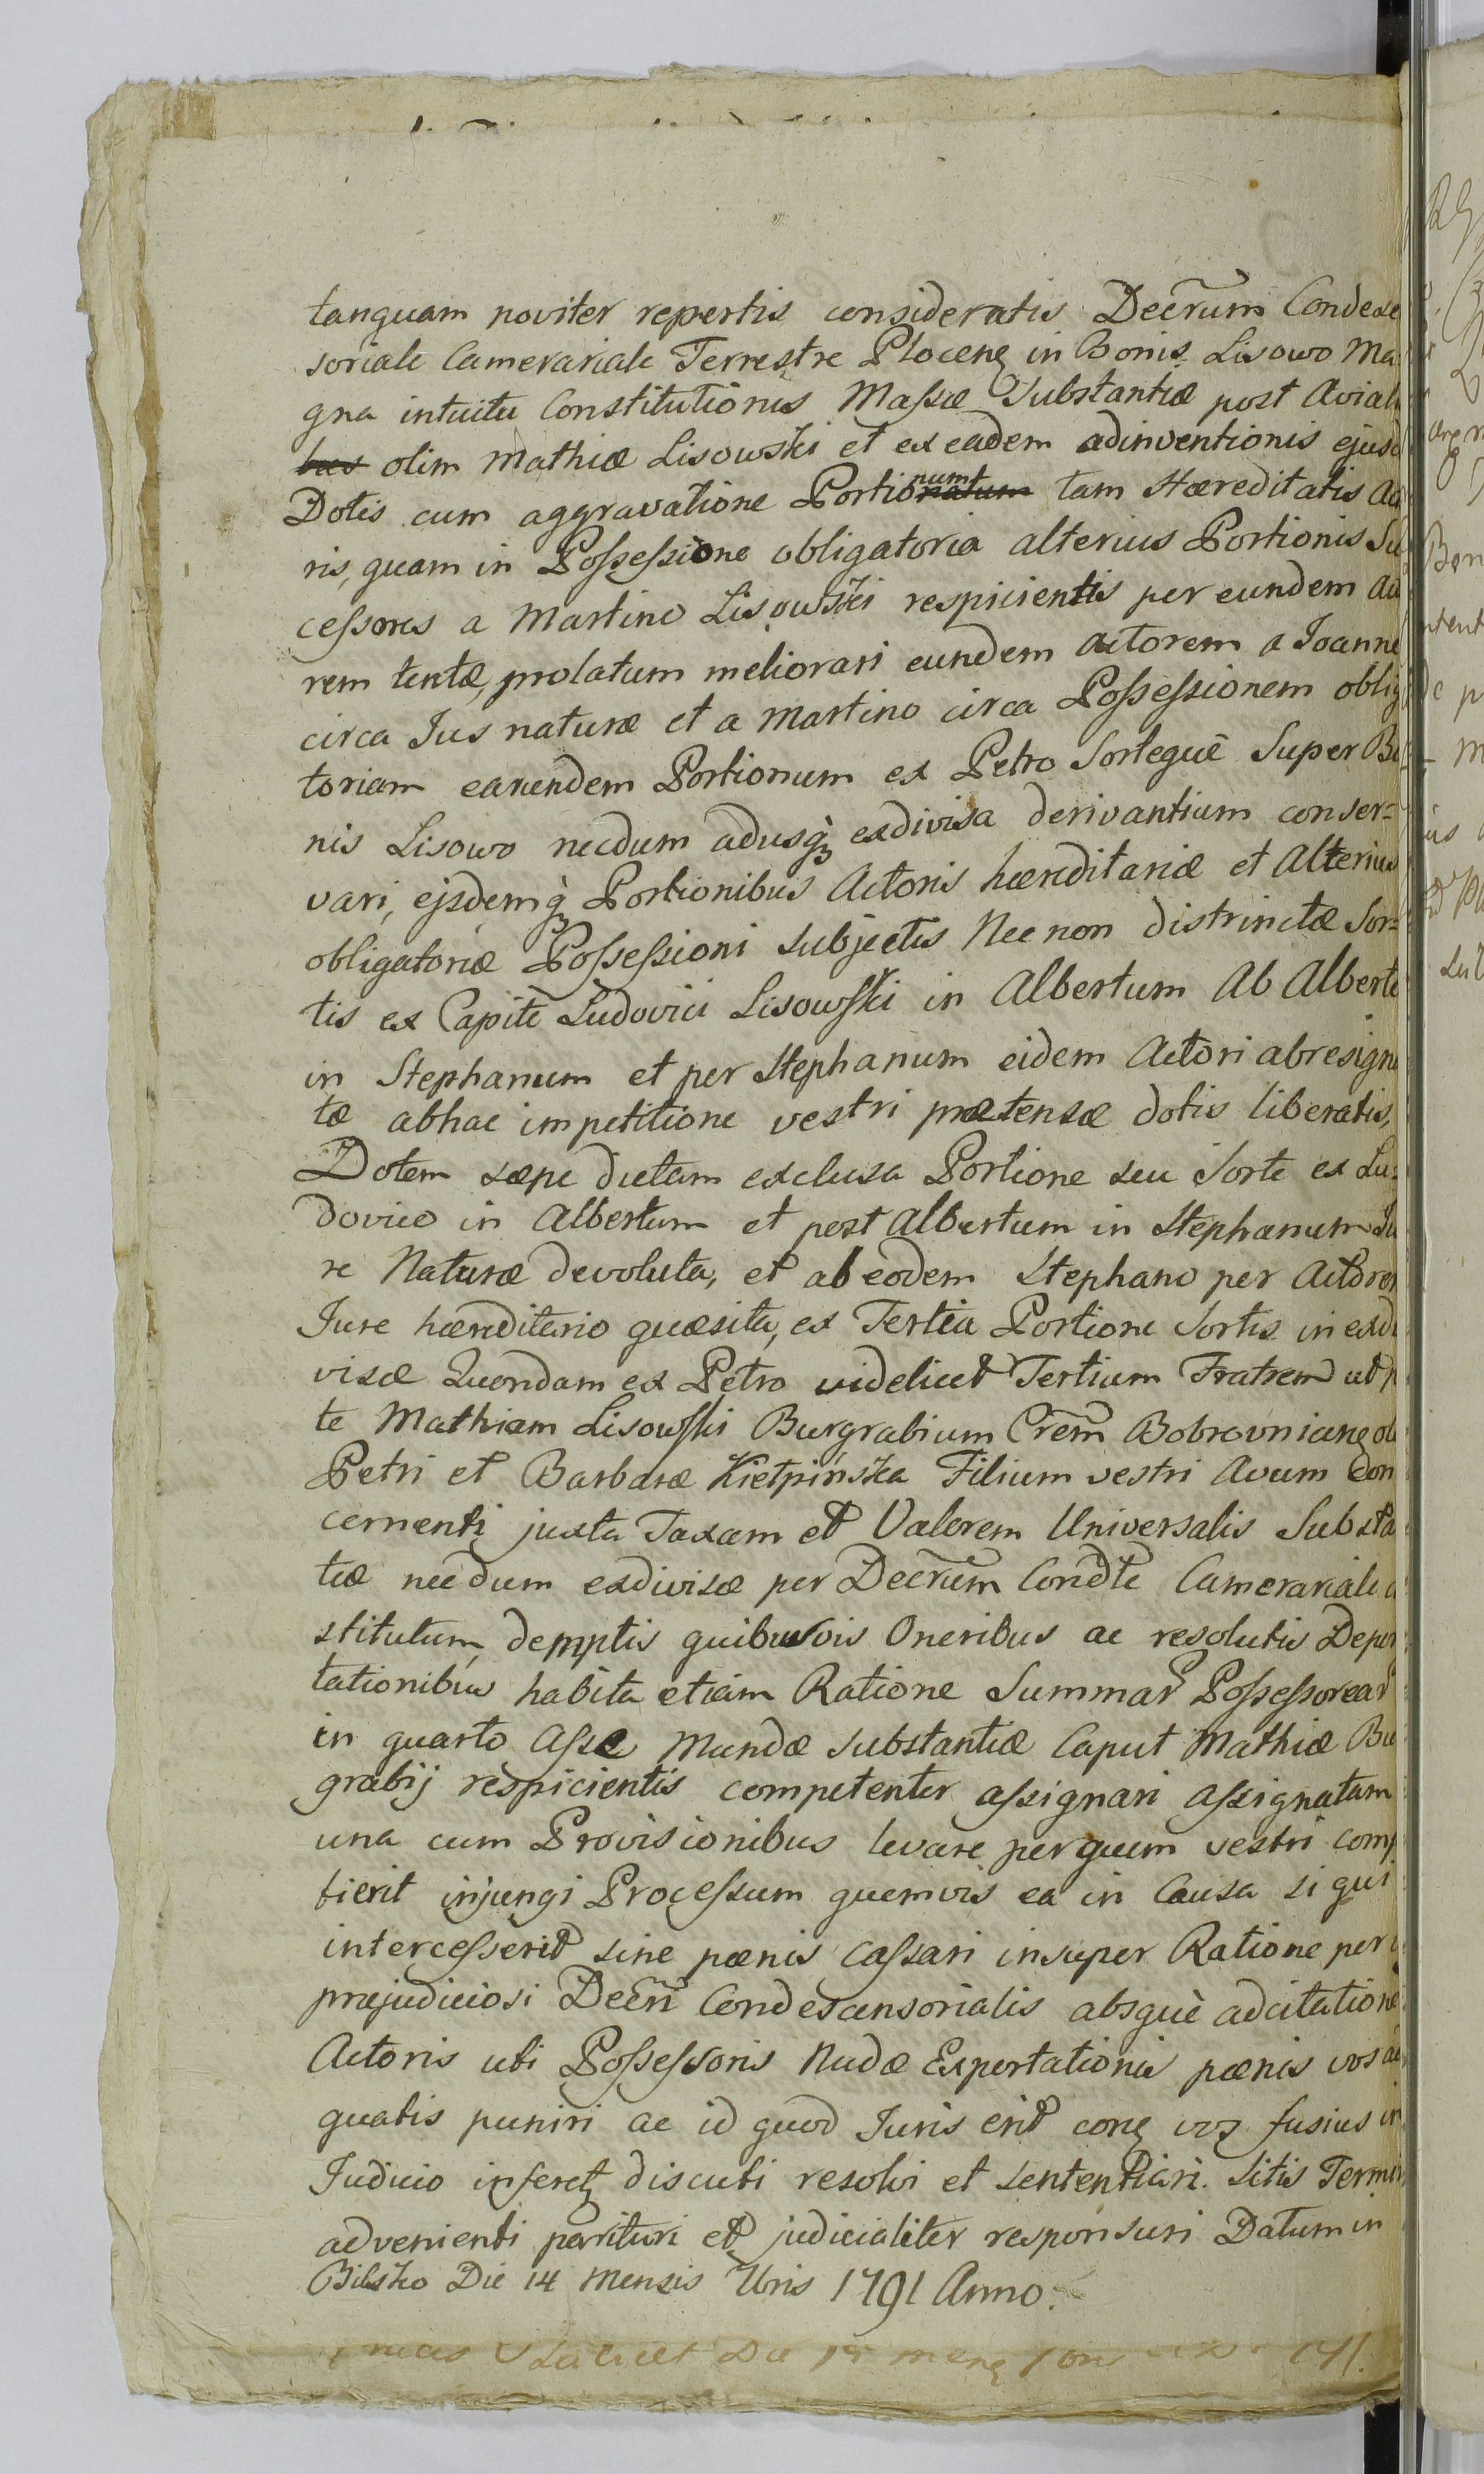 tanquam noviter repertis consideratis Decrum Condesc
soriale Camerariale Terrestre Plocens in Bonis Lisowo Ma
gna intuitu Constitutionis Massæ Substantiæ post Aviali
olim Mathiæ Lisowski et ex eadem adinventionis ejusd
Dotis cum aggravatione Portionum tam Hæreditatis Ac
ris, quam in Possessione obligatoria alterius Portionis Su
cessores a Martino Lisowski respicientis per eundem Ac
rem tentæ, prolatum meliorari eundem Actorem a Joanne
circa Jus naturæ et a Martino circa Possessionem oblig
toriam earundem Portionum ex Petro Sorteque Super Bo
nis Lisowo necdum adusq exdivisa derivantium conser=
vari, ejsdemq Portionibus Actoris hæreditariæ et Alterius
obligatoriæ Possessioni subjectis Nec non distrinctæ Sor=
tis ex Capite Ludovici Lisowski in Albertum Ab Alberto
in Stephanum et per Stephanum eidem Actori abresigna
tæ abhac impetitione vestri prætensæ dotis liberatis,
Dotem sæpe dictam exclusa Portione seu Sorte ex Lu=
dovico in Albertum et post Albertum in Stephanum Ju
re Naturæ devoluta, et ab eodem Stephano per Actorem
Jure hæreditario quæsita, ex Tertia Portione Sortis in exdi
visæ Quondam ex Petro videlicet Tertium Fratrem ut p
te Mathiam Lisowski Burgrabium Crem Bobrovnicens ol
Petri et Barbaræ Kiełpińska Filium vestri Avum Con
cernenti juxta Taxam et Valorem Universalis Substa
tiæ necdum exdivisæ per Decrum Condle Camerariale
stitutum, demptis quibusvis Oneribus ac resolutis Depor
tationibus habita etiam Ratione Summar Possessorear
in quarto Asse Mundæ substantiæ Caput Mathiæ Bu
grabij respicientis competenter assignari assignatam
una cum Provisionibus levare per quem vestri comp
tierit injungi Processum quemvis ea in Causa si qui
intercesserit sine pœnis cassari insuper Ratione per
præjudiciosi Decri Condescensorialis absque adcitatione
Actoris uti Possessoris Nudæ Exportationis pœnis vos
quatis puniri ac id quod Juris erit cons vos fusius in
Judicio inferets discuti resolvi et sententiari. Sitis Termin
advenienti parituri et judicialiter responsuri Datum in
Bilsko Die 14 Mensis Xbris 1791 Anno.